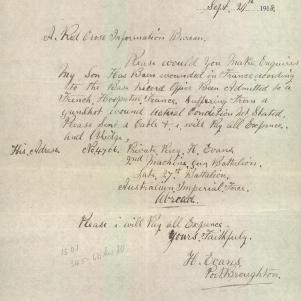 Sept. 24th 1918
A Red Cross Information Bureau.
Please would you Make Enquires
My Son Has been wounded in France acording
to the Base record Office Been Admitted to a
French, Hospital France, suffering from a
gunshot wound Actual Condition Not Stated.
Please Send a Cable & i will Pay all Expence.
and Oblidge.
His Adress No 4706. Private Percy H. Evans
2nd Machine Gun Battalion.
Late 27th Battalion.
Australian Imperial Force.
Abroad.
Please i will Pay all Expence.
Yours Faithfully.
H. Evans
Port Broughton.